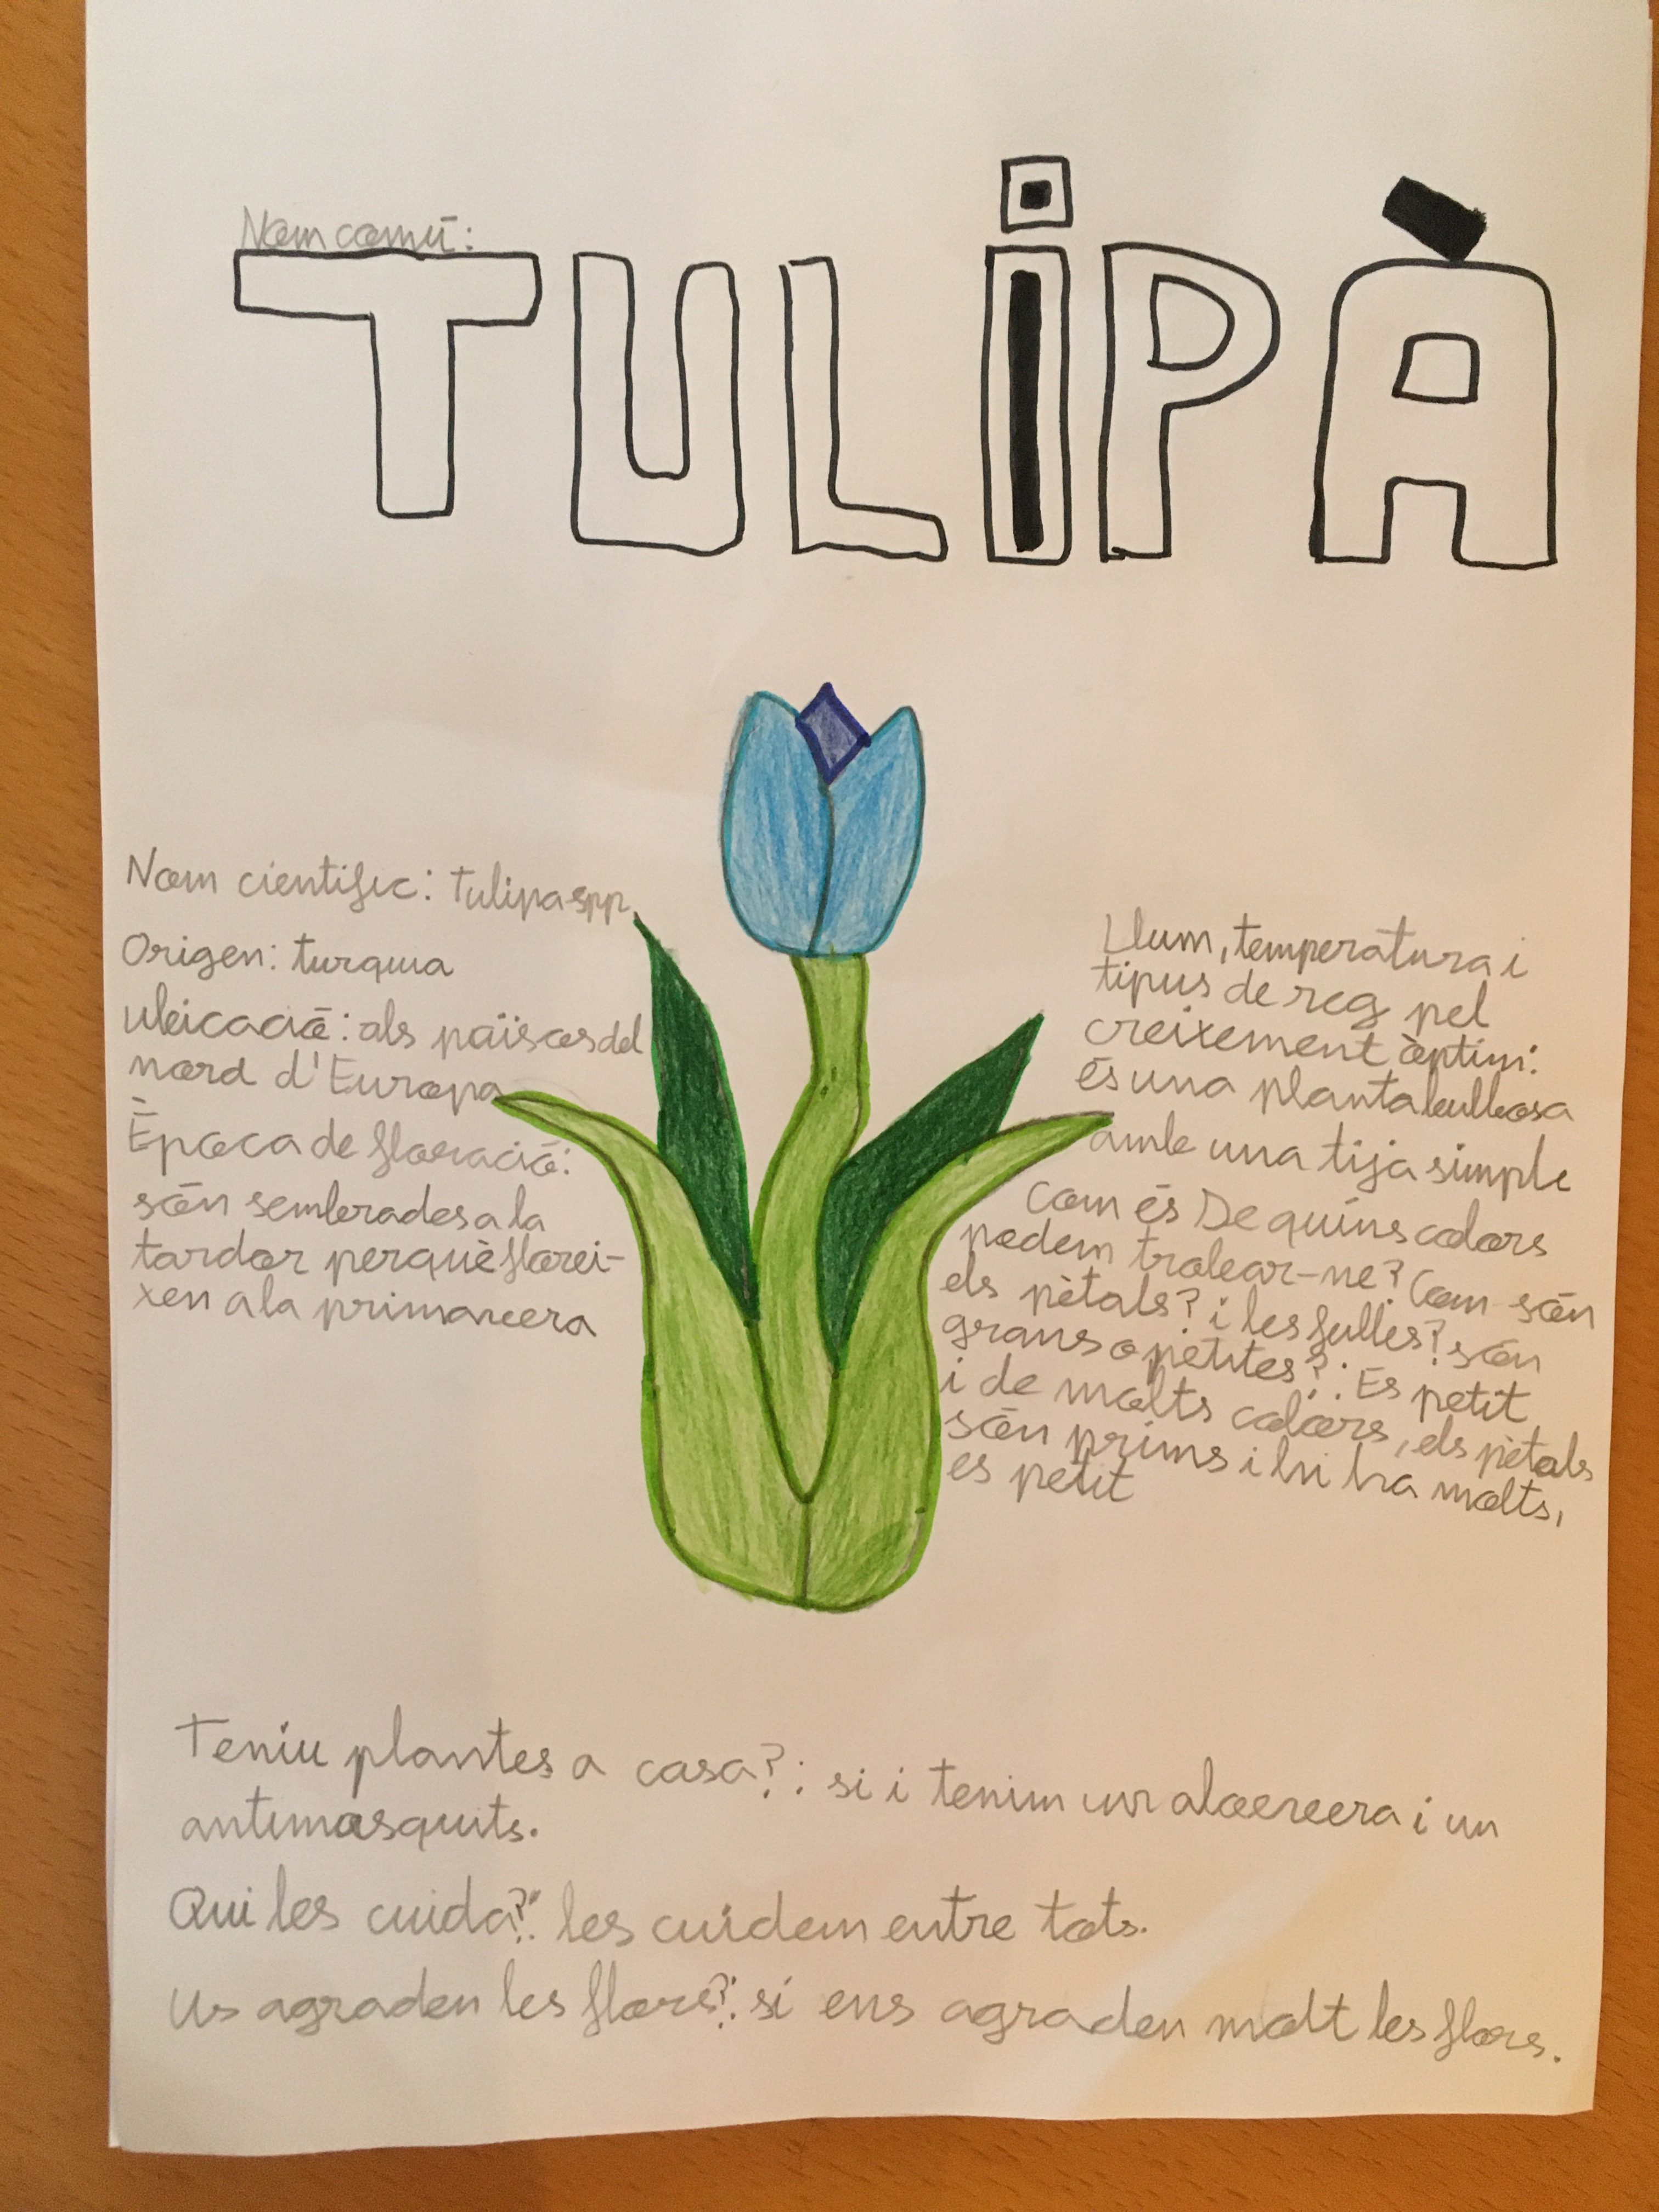 Nom comú:
TULIPÀ
Nom cientific: tulipa spp
Origen: turquia
ubicació: als països del
nord d'Europa
Època de floració:
són sembrades a la
tardor perquè florei-
xen a la primavera
Llum, temperatura i
tipus de reg pel
creixement òptim:
és una planta bulbosa
amb una tija simple
Com és De quins colors
podem trobar-ne? Com són
els pètals? i les fulles? són
grans o petites?: Es petit
i de molts colors, els pètals
són prims i hi ha molts,
es petit
Teniu plantes a casa?: si i tenim un aloevera i un
antimosquits.
Qui les cuida?: les cuidem entre tots.
Us agraden les flors?: si ens agraden molt les flors.